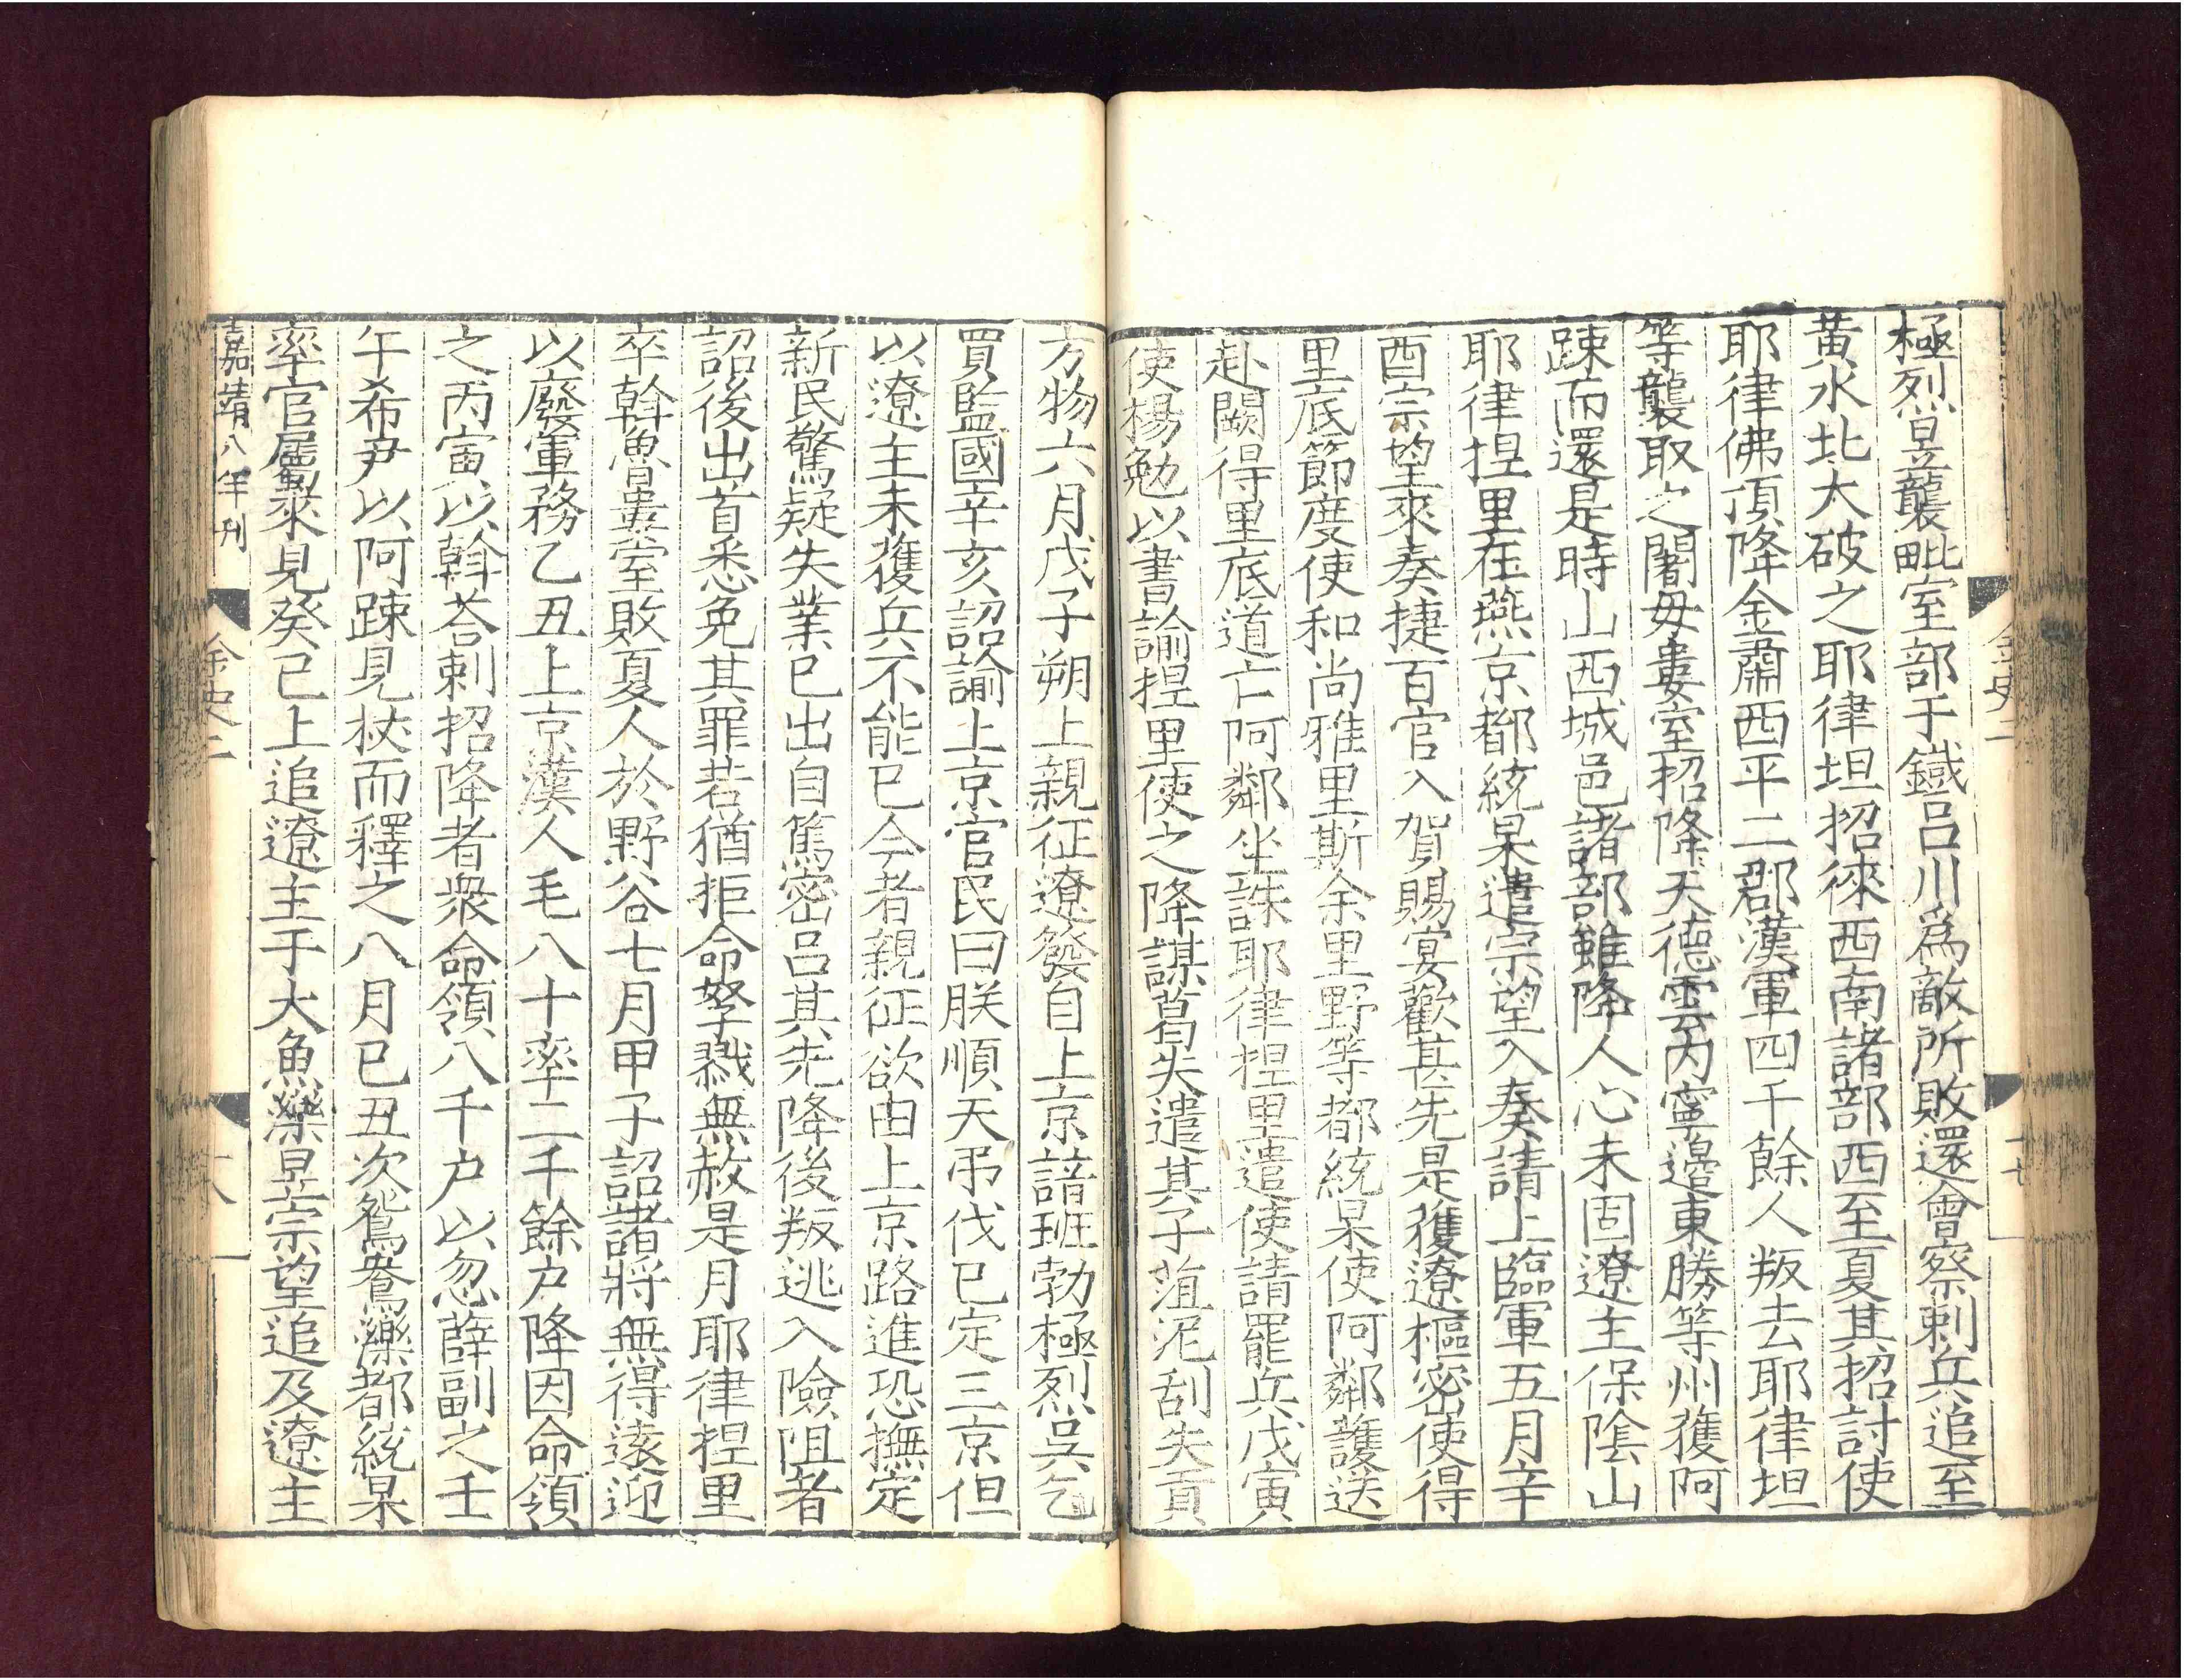 金史二
十七
極烈昱襲毗室部于鐵呂川爲敵所敗還會察剌兵追至
黃水北大破之耶律坦招徠西南諸部西至夏其招討使
耶律佛頂降金肅西平二郡漢軍四千餘人叛去耶律坦
等襲取之闍毋婁室招降天德雲內寧邊東勝等州獲阿
踈而還是時山西城邑諸部雖降人心未固遼主保隂山
耶律捏里在燕京都統杲遣宗望入奏請上臨軍五月辛
酉宗望來奏捷百官入賀賜宴歡甚先是獲遼樞密使得
里底節度使和尚雅里斯余里野等都統杲使阿鄰護送
赴闕得里底道亡阿鄰坐誅耶律捏里遣使請罷兵戊寅
使楊勉以書諭捏里使之降謀葛失遣其子菹泥刮失貢
方物六月戊子朔上親征遼發自上京諳班勃極烈吳乞
買監國辛亥詔諭上京官民曰朕順天弔伐已定三京但
以遼主未獲兵不能已今者親征欲由上京路進恐撫定
新民驚疑失業已出自篤密呂其先降後叛逃入險阻者
詔後出首悉免其罪若猶拒命孥戮無赦是月耶律捏里
卒斡魯婁室敗夏人於野谷七月甲子詔諸將無得遠迎
以廢軍務乙丑上京漢人毛八十率二千餘户降因命領
之丙寅以斡荅剌招降者衆命領八千户以忽薛副之壬
午希尹以阿踈見杖而釋之八月己丑次鴛鴦濼都統杲
率官屬來見癸巳上追遼主于大魚濼昱宗望追及遼主
嘉靖八年刊
金史二
十八